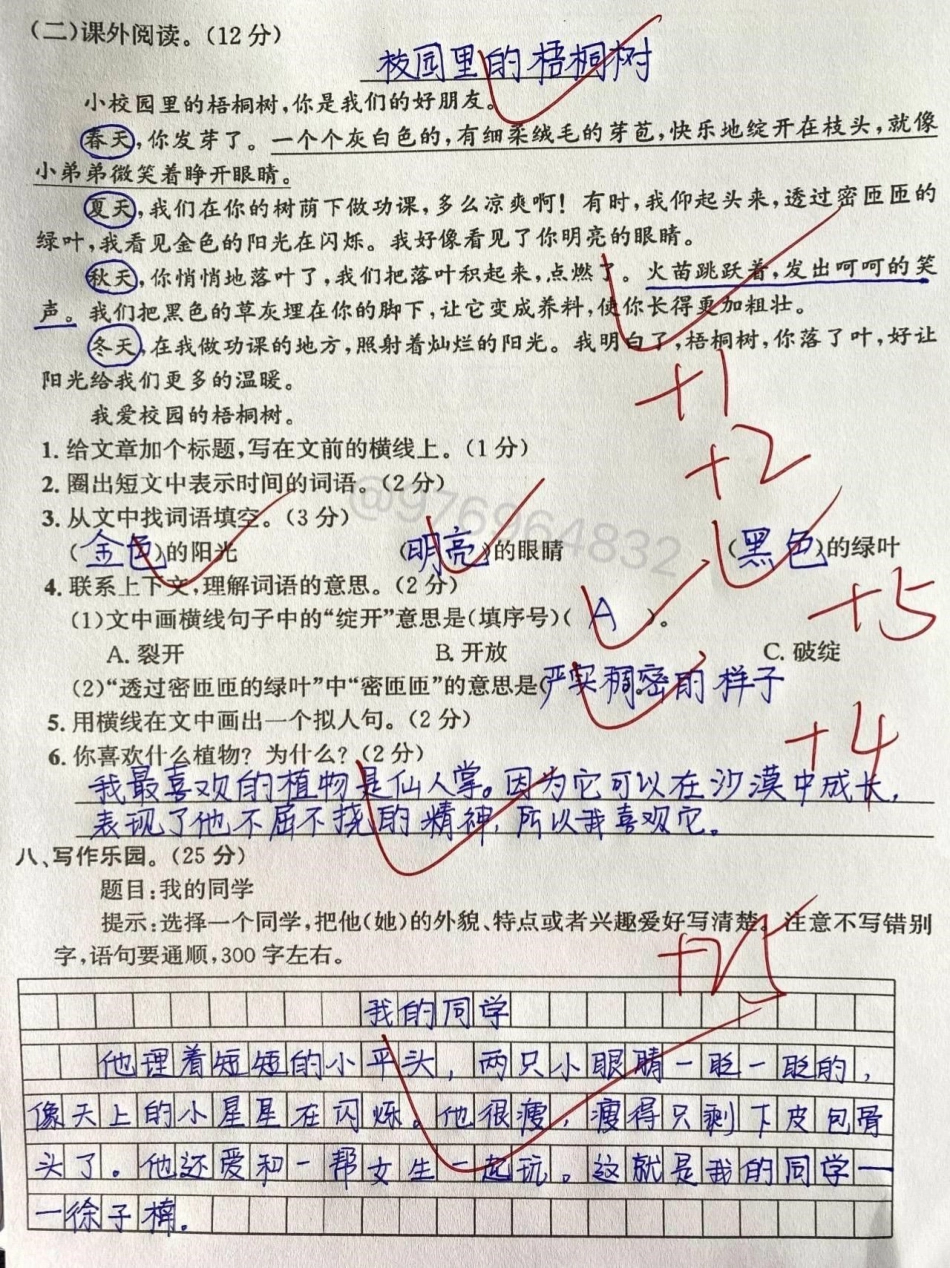 (二)课外阅读。(12分)
校园里的梧桐树
小校园里的梧桐树,你是我们的好朋友。
春天,你发芽了。一个个灰白色的,有细柔绒毛的芽苞,快乐地绽开在枝头,就像
小弟弟微笑着睁开眼睛。
夏天,我们在你的树荫下做功课,多么凉爽啊!有时,我仰起头来,透过密匝匝的
绿叶,我看见金色的阳光在闪烁。我好像看见了你明亮的眼睛。
秋天,你悄悄地落叶了,我们把落叶积起来,点燃了。火苗跳跃着,发出呵呵的笑
声。我们把黑色的草灰埋在你的脚下,让它变成养料,使你长得更加粗壮。
冬天,在我做功课的地方,照射着灿烂的阳光。我明白了,梧桐树,你落了叶,好让
阳光给我们更多的温暖。
+1
我爱校园的梧桐树。
1. 给文章加个标题,写在文前的横线上。(1分)
+2
2. 圈出短文中表示时间的词语。(2分)
@976964832
3. 从文中找词语填空。(3分)
(金色)的阳光 (明亮)的眼睛 (黑色)的绿叶
4. 联系上下文,理解词语的意思。(2分)
+5
(1)文中画横线句子中的“绽开”意思是(填序号)( A )。
A. 裂开 B. 开放 C. 破绽
(2)“透过密匝匝的绿叶”中“密匝匝”的意思是(严实稠密的样子
5. 用横线在文中画出一个拟人句。(2分)
+4
6. 你喜欢什么植物?为什么?(2分)
我最喜欢的植物是仙人掌。因为它可以在沙漠中成长,
表现了他不屈不挠的精神,所以我喜欢它。
八、写作乐园。(25分)
题目:我的同学
提示:选择一个同学,把他(她)的外貌、特点或者兴趣爱好写清楚。注意不写错别
字,语句要通顺,300字左右。
+25
我的同学
他理着短短的小平头,两只小眼睛一眨一眨的,
像天上的小星星在闪烁。他很瘦,瘦得只剩下皮包骨
头了。他还爱和一帮女生一起玩。这就是我的同学—
—徐子楠。